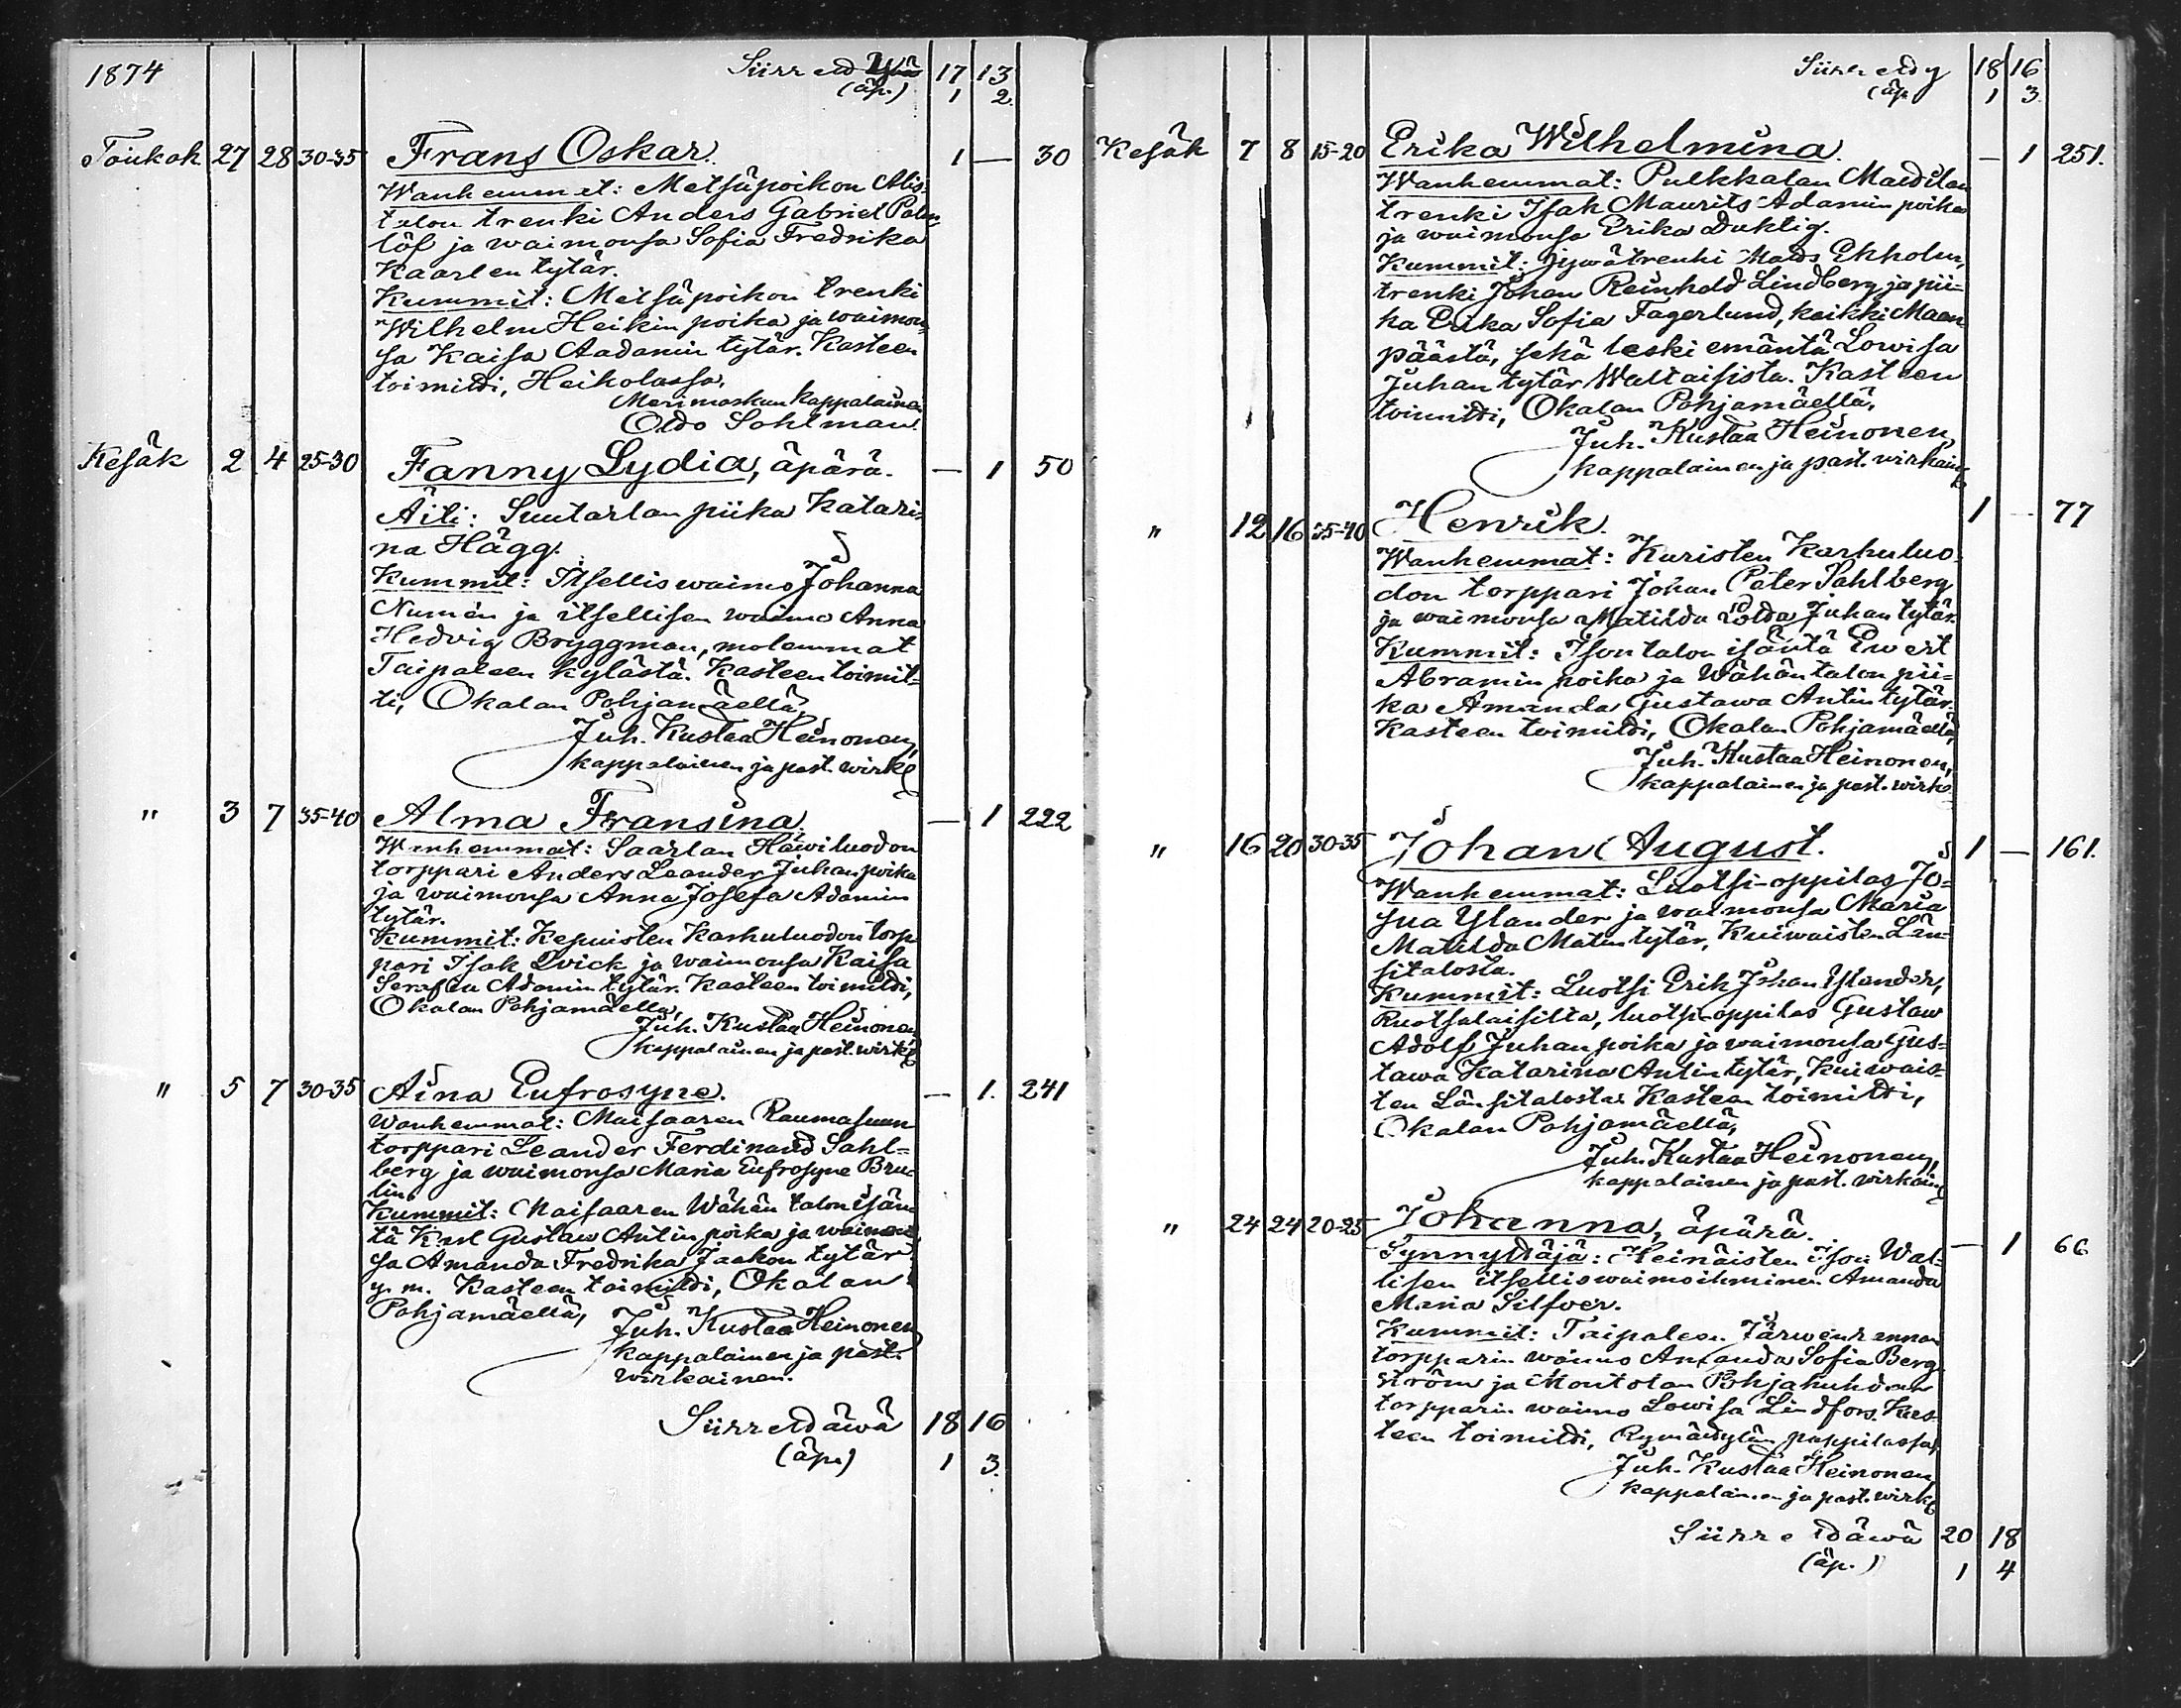 1874 Siirretty 17 13
(äp.) 1 2.
Toukok 27 28 30-35 Frans Oskar. 1 — 30
Wanhemmat: Metsäpoikon Alis-
talon trenki Anders Gabriel Palm-
löf ja waimonsa Sofia Fredrika
Kaarlen tytär.
Kummit: Metsäpoikon trenki
Wilhelm Heikin poika ja waimon-
sa Kaisa Aadamin tytär. Kasteen
toimitti, Heikolassa,
Merimaskun kappalainen
Otto Sohlman.
Kesäk 2 4 25-30 Fanny Lydia, äpärä. — 1 50
Äiti: Suutarlan piika Katari-
na Hägg.
Kummit: Itsellis waimo Johanna
Numén ja itsellisen waimo Anna
Hedvig Bryggman, molemmat
Taipaleen kylästä. Kasteen toimit=
ti, Okalan Pohjamäellä,
Juh. Kustaa Heinonen,
kappalainen ja past. wirk.
" 3 7 35-40 Alma Fransina. — 1 222
Wanhemmat: Saarlan Hawiluodon
torppari Anders Leander Juhan poika
ja waimonsa Anna Josefa Adamin
tytär.
Kummit: Kepuisten Karhuluodon torp-
pari Isak Qvick ja waimonsa Kaisa
Serafia Adamin tytär. Kasteen toimitti,
Okalan Pohjamäellä,
Juh. Kustaa Heinonen
kappalainen ja past. wirk.
" 5 7 30-35 Aina Eufrosyne. — 1. 241
Wanhemmat: Maisaaren Raumasuun
torppari Leander Ferdinand Sahl=
berg ja waimonsa Maria Eufrosyne Bru-
lin.
Kummit: Maisaaren Wähän talon isän-
tä Karl Gustaw Antin poika ja waimon-
sa Amanda Fredrika Jaakon tytär
y. m. Kasteen toimitti, Okalan
Pohjamäellä, Juh. Kustaa Heinonen
kappalainen ja past.
wirkainen.
Siirrettäwä 18 16
(äp.) 1 3.
Siirretty 18 16
(äp. 1 3.
Kesäk 7 8 15-20 Erika Wilhelmina. — 1 251.
Wanhemmat: Pulkkalan Mattilan
trenki Isak Maurits Adamin poika
ja waimonsa Erika Duktig.
Kummit: Jywätrenki Mats Ekholm,
trenki Johan Reinhold Lindberg ja pii-
ka Erika Sofia Fagerlund, kaikki Maan-
päästä, sekä leski emäntä Lowisa
Juhan tytär Waltaisista. Kasteen
toimitti, Okalan Pohjamäellä,
Juh. Kustaa Heinonen,
kappalainen ja past. wirkain.
" 12 16 35-40 Henrik. 1 — 77
Wanhemmat: Kuristen Karhuluo-
don torppari Johan Peter Sahlberg
ja waimonsa Matilda Lotta Juhan tytär.
Kummit: Ison talon isäntä Ewert
Abramin poika ja Wähäntalon pii=
ka Amanda Gustawa Antin tytär.
Kasteen toimitti, Okalan Pohjamäellä,
Juh. Kustaa Heinonen,
kappalainen ja past. wirk.
" 16 20 30-35 Johan August. 1 — 161.
Wanhemmat: Luotsi-oppilas Jo=
sua Ylander ja waimonsa Maria
Matilda Matin tytär, Kuiwaisten Län-
sitalosta.
Kummit: Luotsi Erik Johan Ylander,
Ruotsalaisilta, luotsi-oppilas Gustaw
Adolf Juhan poika ja waimonsa Gus=
tawa Katarina Antin tytär, Kuiwais-
ten Länsitalosta. Kasteen toimitti,
Okalan Pohjamäellä,
Juh. Kustaa Heinonen,
kappalainen ja past. wirkain.
" 24 24 20-25 Johanna, äpärä. — 1 66
Synnyttäjä: Heinäisten Ison Wal-
lisen itsellis waimoihminen Amanda
Maria Silfver.
Kummit: Taipaleen Järwenrannan
torpparin waimo Amanda Sofia Berg-
ström ja Montolan Pohjahuhdan
torpparin waimo Lowisa Lindfors. Kas-
teen toimitti, Rymättylän pappilassa,
Juh. Kustaa Heinonen,
kappalainen ja past. wirk.
Siirrettäwä 20 18
(äp.) 1 4